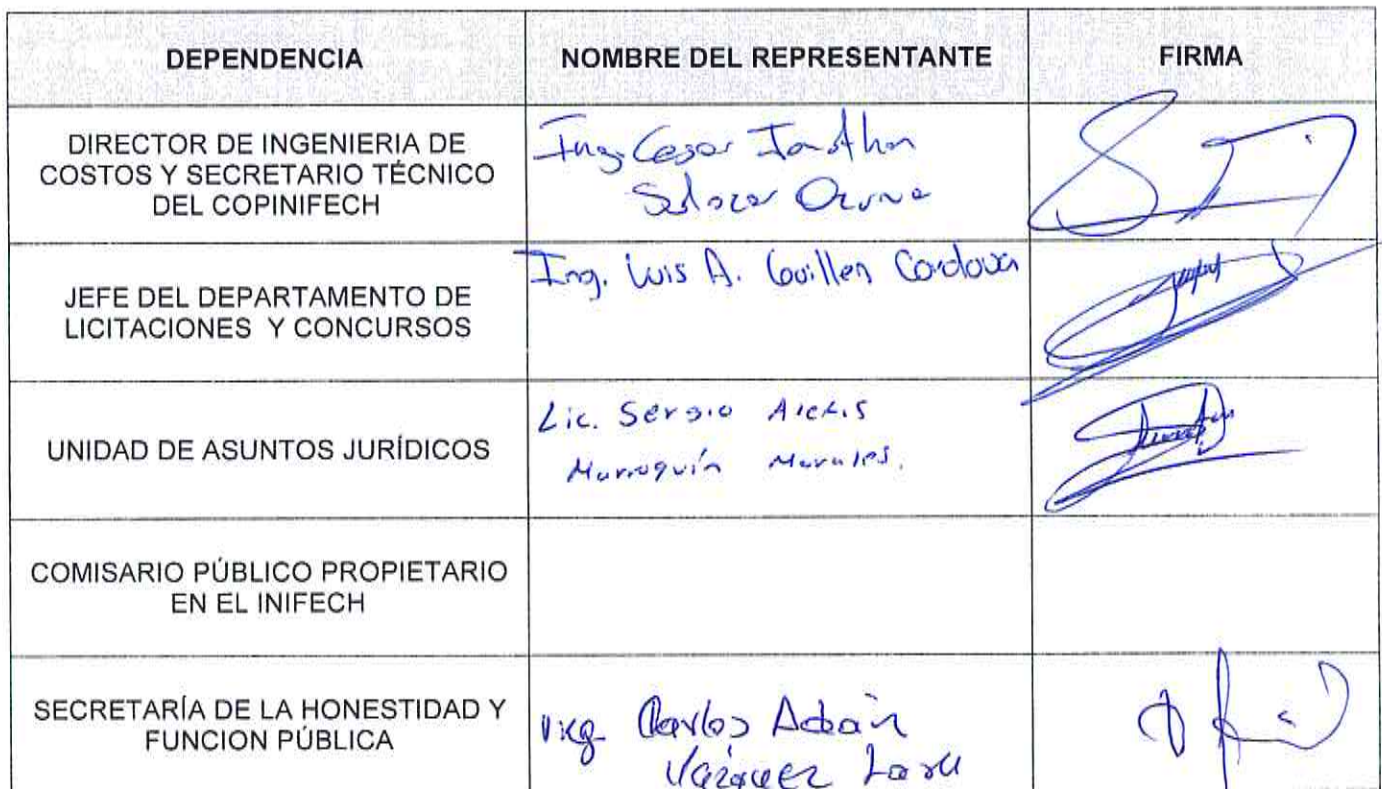 DEPENDENCIA
NOMBRE DEL REPRESENTANTE
FIRMA
DIRECTOR DE INGENIERIA DE
COSTOS Y SECRETARIO TÉCNICO
DEL COPINIFECH
Ing. Cesar
Salazar
JEFE DEL DEPARTAMENTO DE
LICITACIONES Y CONCURSOS
Ing. Luis A. Guillen Cordova
UNIDAD DE ASUNTOS JURÍDICOS
Lic. Sergio Alexis
Marroquín Morales.
COMISARIO PÚBLICO PROPIETARIO
EN EL INIFECH
SECRETARÍA DE LA HONESTIDAD Y
FUNCION PÚBLICA
Carlos Adain
Vázquez Lara